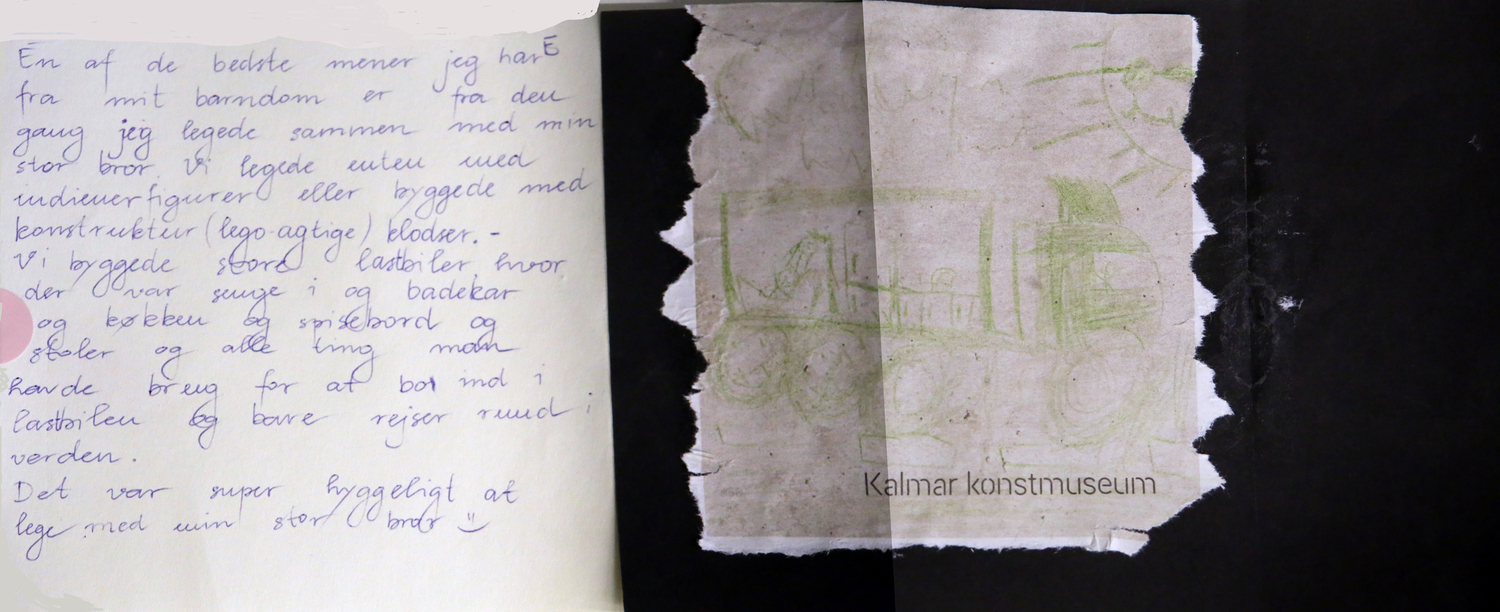 En af de bedste mener jeg har E
fra mit barndom er fra den
gang jeg legede sammen med min
stor bror. Vi legede enten med
indienerfigurer eller byggede med
konstruktur (lego-agtige) klodser. -
Vi byggede store lastbiler, hvor
der var senge i og badekar
og køkken og spisebord og
stoler og alle ting man
havde brug for at bo ind i
lastbilen og bare rejser rund i
verden.
Det var super hyggeligt at
lege med min stor bror
Kalmar konstmuseum